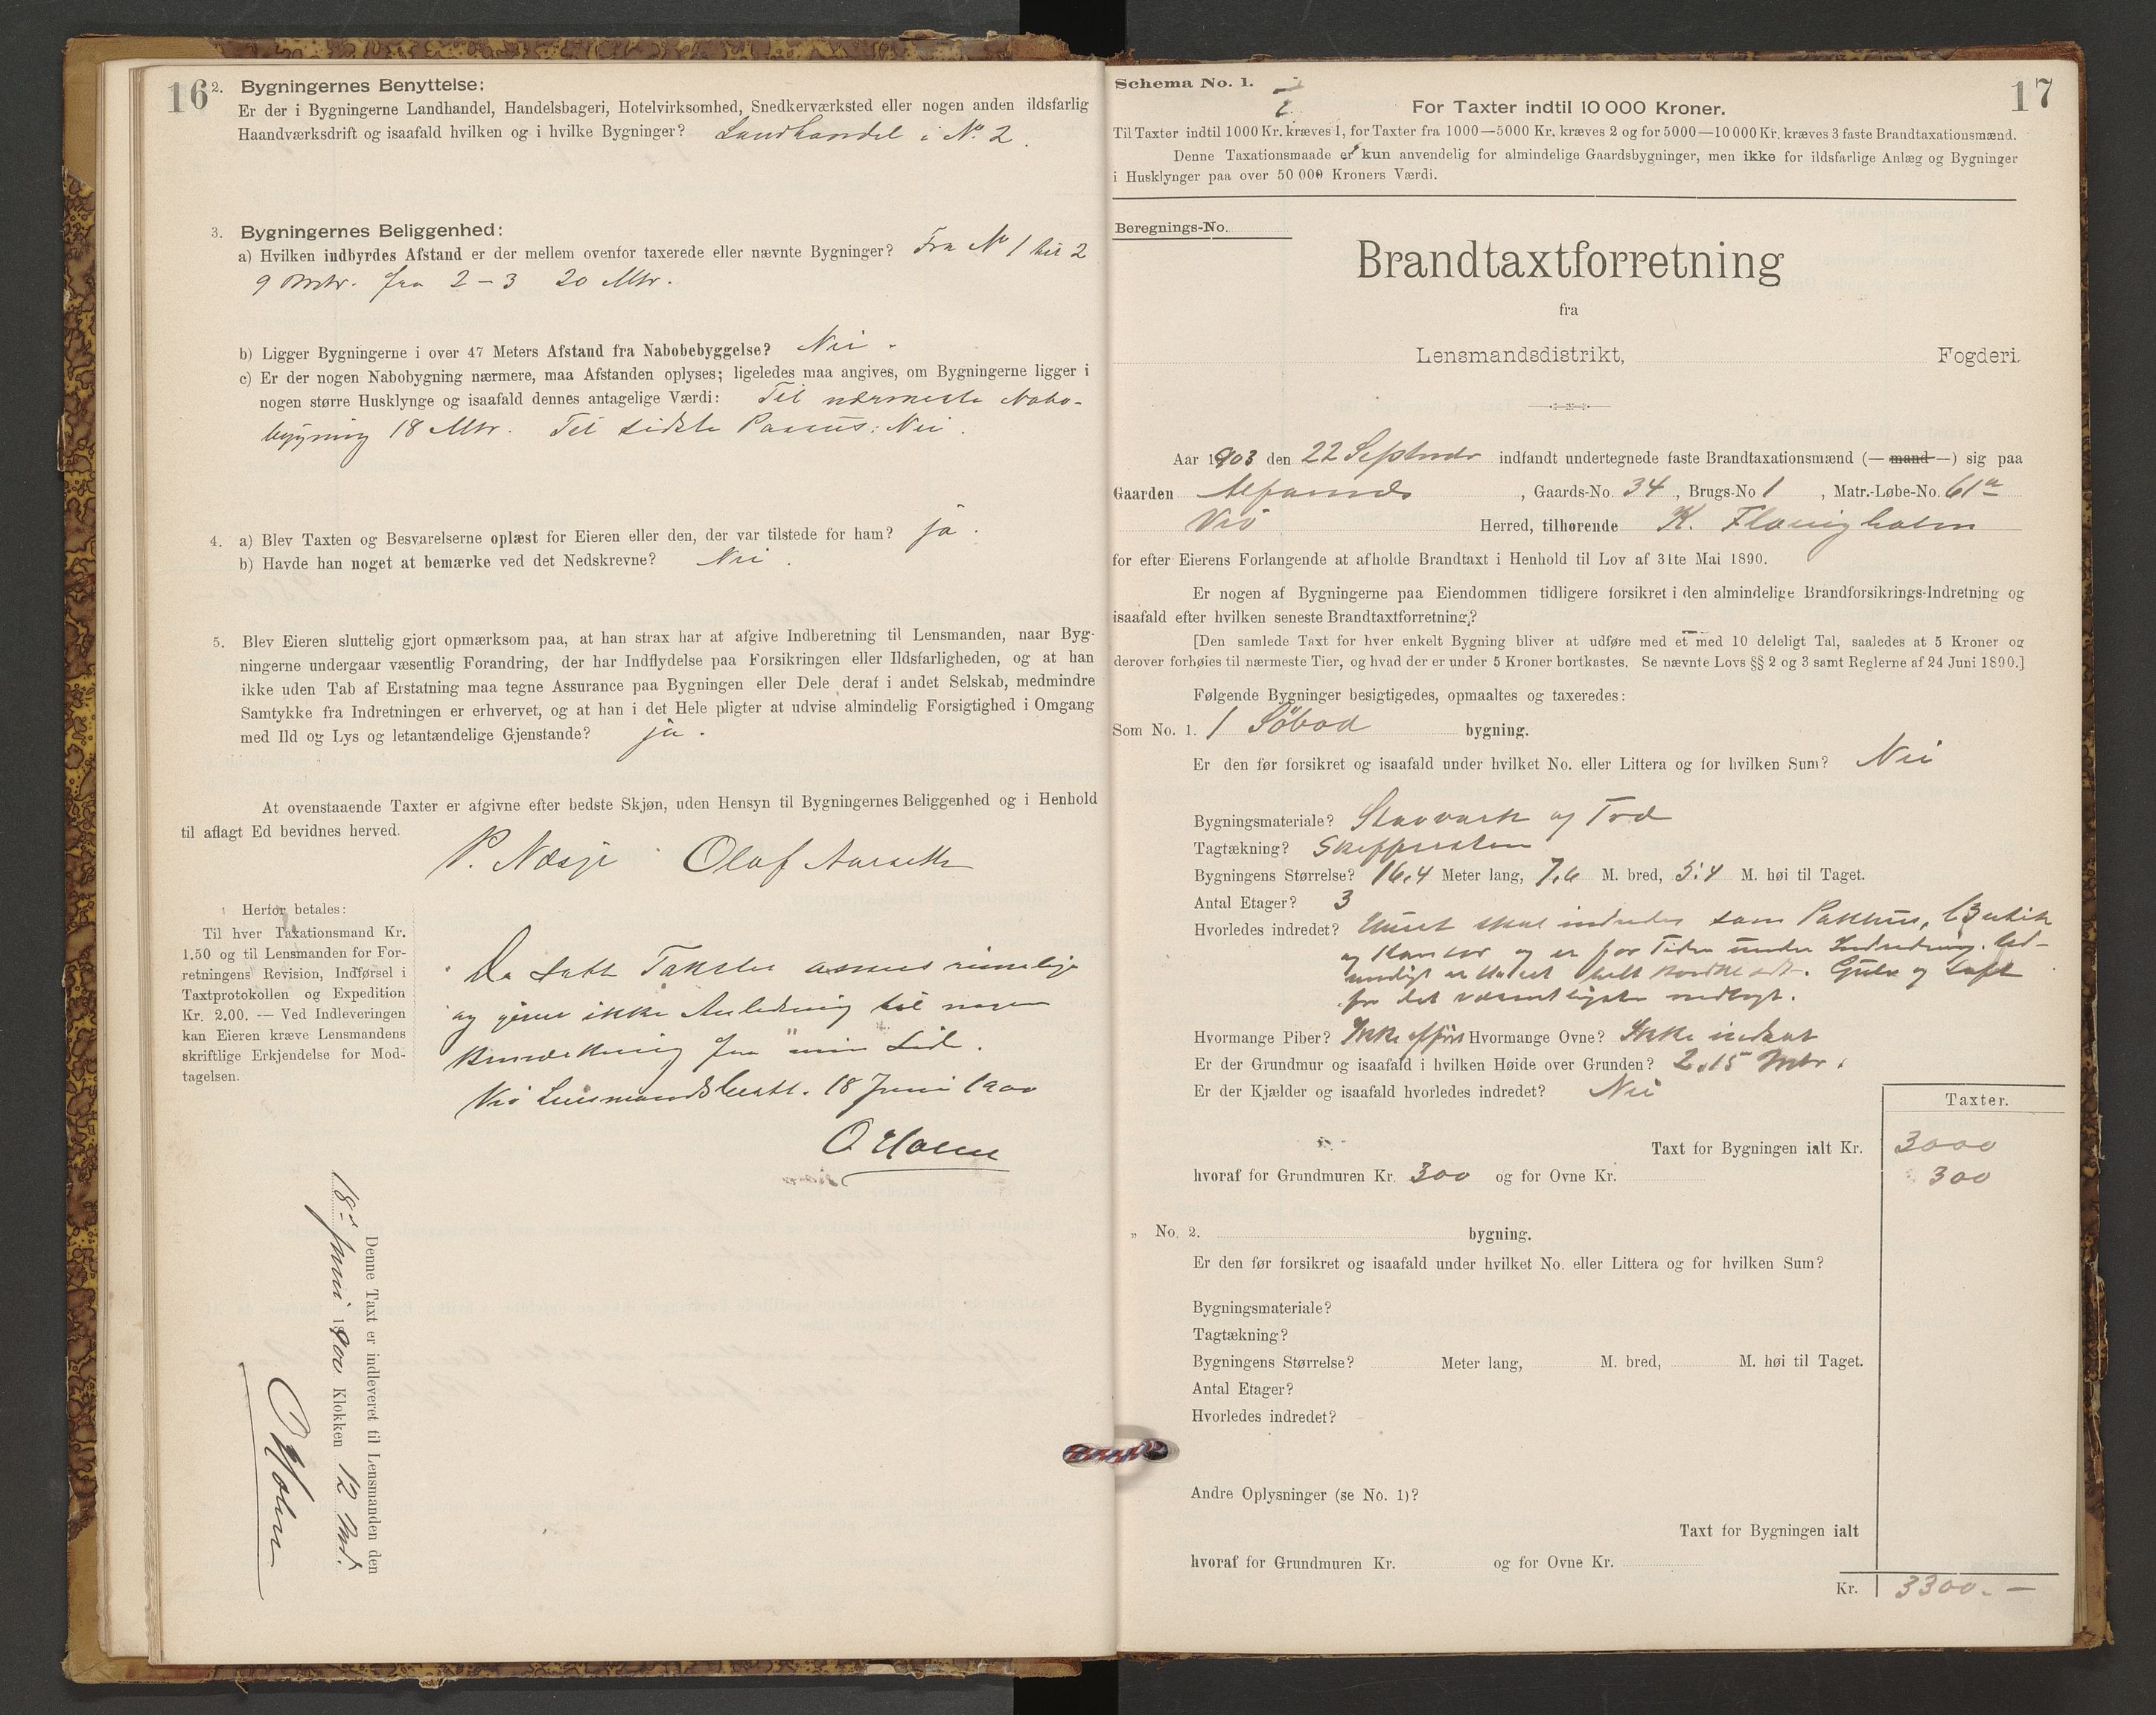 16
2. Bygningernes Benyttelse:
Er der i Bygningerne Landhandel, Handelsbageri, Hotelvirksomhed, Snedkerværksted eller nogen anden ildsfarlig
Haandværksdrift og isaafald hvilken og i hvilke Bygninger? Landhandel i No. 2.
3. Bygningernes Beliggenhed:
a) Hvilken indbyrdes Afstand er der mellem ovenfor taxerede eller nævnte Bygninger? Fra No 1 til 2
9 Mtr. fra 2 – 3 20 Mtr.
b) Ligger Bygningerne i over 47 Meters Afstand fra Nabobebyggelse? Nei.
c) Er der nogen Nabobygning nærmere, maa Afstanden oplyses; ligeledes maa angives, om Bygningerne ligger i
nogen større Husklynge og isaafald dennes antagelige Værdi: Til nærmeste Nabo-
bygning 18 Mtr. Til sidste Passus: Nei.
4. a) Blev Taxten og Besvarelserne oplæst for Eieren eller den, der var tilstede for ham? ja.
b) Havde han noget at bemærke ved det Nedskrevne? Nei.
5. Blev Eieren sluttelig gjort opmærksom paa, at han strax har at afgive Indberetning til Lensmanden, naar Byg-
ningerne undergaar væsentlig Forandring, der har Indflydelse paa Forsikringen eller Ildsfarligheden, og at han
ikke uden Tab af Erstatning maa tegne Assurance paa Bygningen eller Dele deraf i andet Selskab, medmindre
Samtykke fra Indretningen er erhvervet, og at han i det Hele pligter at udvise almindelig Forsigtighed i Omgang
med Ild og Lys og letantændelige Gjenstande? ja.
At ovenstaaende Taxter er afgivne efter bedste Skjøn, uden Hensyn til Bygningernes Beliggenhed og i Henhold
til aflagt Ed bevidnes herved.
P. Næsje Olaf Aarseth
Herfor betales:
Til hver Taxationsmand Kr.
1.50 og til Lensmanden for For-
retningens Revision, Indførsel i
Taxtprotokollen og Expedition
Kr. 2.00. — Ved Indleveringen
kan Eieren kræve Lensmandens
skriftlige Erkjendelse for Mod-
tagelsen.
De satte Takster ansees rimelige
og giver ikke Anledning til nogen
Bemærkning fra min Side.
Lensmandsbest. 18 Juni 1900
O Holm
Denne Taxt er indleveret til Lensmanden den
18de Juni 1900 Klokken 12 Md.
O Holm
17
Schema No. 1.
For Taxter indtil 10 000 Kroner.
Til Taxter indtil 1000 Kr. kræves 1, for Taxter fra 1000—5000 Kr. kræves 2 og for 5000—10 000 Kr. kræves 3 faste Brandtaxationsmænd.
Denne Taxationsmaade er kun anvendelig for almindelige Gaardsbygninger, men ikke for ildsfarlige Anlæg og Bygninger
i Husklynger paa over 50 000 Kroners Værdi.
Beregnings-No.
Brandtaxtforretning
fra
Lensmandsdistrikt, Fogderi.
Aar 1903 den 22 September indfandt undertegnede faste Brandtaxationsmænd (— mand —) sig paa
Gaarden , Gaards-No. 34, Brugs-No 1, Matr.-Løbe-No. 61a
Herred, tilhørende K.
for efter Eierens Forlangende at afholde Brandtaxt i Henhold til Lov af 31te Mai 1890.
Er nogen af Bygningerne paa Eiendommen tidligere forsikret i den almindelige Brandforsikrings-Indretning og
isaafald efter hvilken seneste Brandtaxtforretning?
[Den samlede Taxt for hver enkelt Bygning bliver at udføre med et med 10 deleligt Tal, saaledes at 5 Kroner og
derover forhøies til nærmeste Tier, og hvad der er under 5 Kroner bortkastes. Se nævnte Lovs §§ 2 og 3 samt Reglerne af 24 Juni 1890.]
Følgende Bygninger besigtigedes, opmaaltes og taxeredes:
Som No. 1. 1 Söbod bygning.
Er den før forsikret og isaafald under hvilket No. eller Littera og for hvilken Sum? Nei
Bygningsmateriale? Stavverk og Træ
Tagtækning? Skiffersten
Bygningens Størrelse? 16,4 Meter lang, 7,6 M. bred, 5,4 M. høi til Taget.
Antal Etager? 3
Hvorledes indredet? Huset skal indredes som Pakhus, Butik
og Kontor og er for Tiden under Indredning. Ud-
vendigt er Huset helt bordklædt. Gulv og Loft
for det væsentligste nedlagt.
Hvormange Piber? Ikke opført Hvormange Ovne? Ikke indsat
Er der Grundmur og isaafald i hvilken Høide over Grunden? 2,15 Mtr.
Er der Kjælder og isaafald hvorledes indredet? Nei
Taxter.
Taxt for Bygningen ialt Kr. 3000
hvoraf for Grundmuren Kr. 300 og for Ovne Kr. 300
„ No. 2. bygning.
Er den før forsikret og isaafald under hvilket No. eller Littera og for hvilken Sum?
Bygningsmateriale?
Tagtækning?
Bygningens Størrelse? Meter lang, M. bred, M. høi til Taget.
Antal Etager?
Hvorledes indredet?
Andre Oplysninger (se No. 1)?
Taxt for Bygningen ialt
hvoraf for Grundmuren Kr. og for Ovne Kr.
Kr. 3300.—